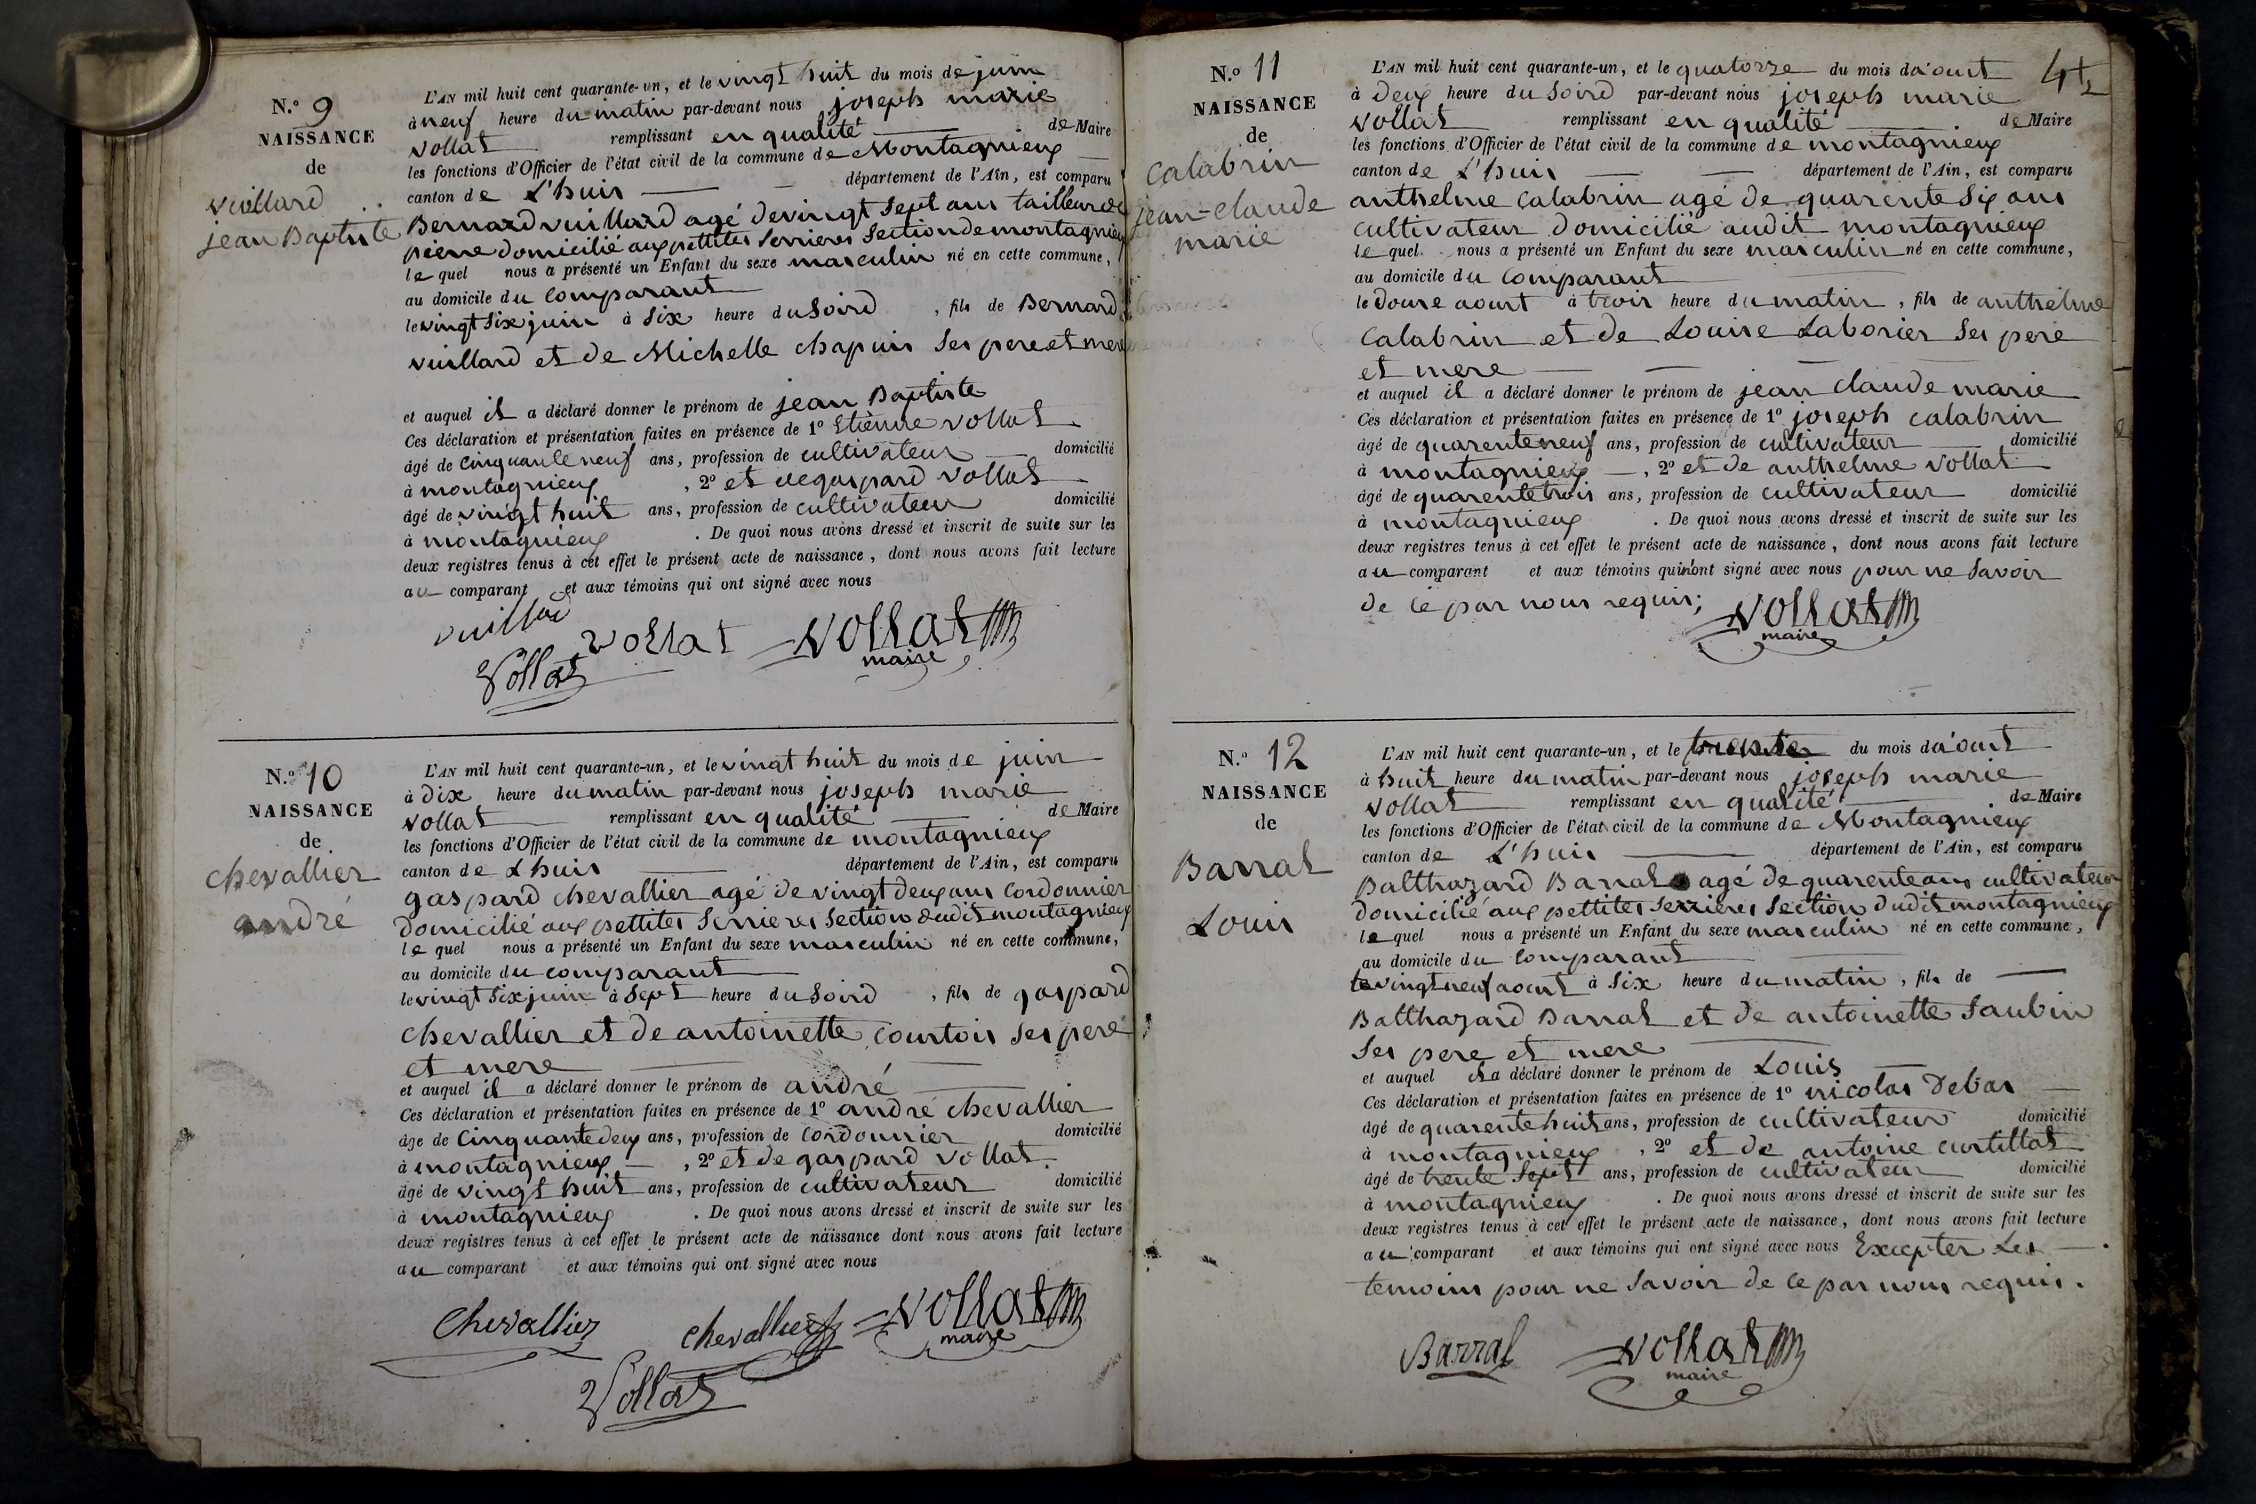 N.º 9
NAISSANCE
de
vuillard
jean Baptiste
L'AN mil huit cent quarante-un, et le vingt huit du mois de juin
à neuf heure du matin par-devant nous joseph marie
vollat remplissant en qualité de Maire
les fonctions d'Officier de l'état civil de la commune de Montagnieux
canton de L'huis département de l'Ain, est comparu
Bernard vuillard agé de vingt sept ans tailleur de
pierre domicilié aux pettites Serrieres Section de montagnieux
le quel nous a présenté un Enfant du sexe masculin né en cette commune,
au domicile du Comparant
le vingt six juin à six heure du Soird , fils de Bernard
vuillard et de Michelle chapuis ses pere et mere
et auquel il a déclaré donner le prénom de jean Baptiste
Ces déclaration et présentation faites en présence de 1º Etienne vollat
âgé de Cinquante neuf ans, profession de cultivateur domicilié
à montagnieux , 2º et de gaspard vollat
âgé de vingt huit ans, profession de cultivateur domicilié
à montagnieux . De quoi nous avons dressé et inscrit de suite sur les
deux registres tenus à cet effet le présent acte de naissance, dont nous avons fait lecture
au comparant et aux témoins qui ont signé avec nous
vuillard
vollat vollat
maire
Vollat
N.º 10
NAISSANCE
de
chevallier
andré
L'AN mil huit cent quarante-un, et le vingt huit du mois de juin
à dix heure du matin par-devant nous joseph marie
vollat remplissant en qualité de Maire
les fonctions d'Officier de l'état civil de la commune de montagnieux
canton de Lhuis département de l'Ain, est comparu
gaspard chevallier agé de vingt deux ans Cordonnier
domicilié aux pettites Serrieres Section dudit montagnieux
le quel nous a présenté un Enfant du sexe masculin né en cette commune,
au domicile du comparant
le vingt six juin à Sept heure du Soird , fils de gaspard
chevallier et de antoinette Courtois ses pere
et mere
et auquel il a déclaré donner le prénom de andré
Ces déclaration et présentation faites en présence de 1º andré chevallier
âgé de Cinquante deux ans, profession de Cordonnier domicilié
à montagnieux , 2º et de gaspard vollat
âgé de vingt huit ans, profession de cultivateur domicilié
à montagnieux . De quoi nous avons dressé et inscrit de suite sur les
deux registres tenus à cet effet le présent acte de naissance dont nous avons fait lecture
au comparant et aux témoins qui ont signé avec nous
Chevallier chevallier vollat
maire
Vollat
N.º 11
NAISSANCE
de
Calabrin
jean-claude
marie
L'AN mil huit cent quarante-un, et le quatorze du mois d'aout
à deux heure du Soird par-devant nous joseph marie
vollat remplissant en qualité de Maire
les fonctions d'Officier de l'état civil de la commune de montagnieux
canton de L'huis département de l'Ain, est comparu
anthelme Calabrin agé de quarente six ans
cultivateur domicilié audit montagnieux
le quel nous a présenté un Enfant du sexe masculin né en cette commune,
au domicile du Comparant
le douze aout à trois heure du matin , fils de anthelme
Calabrin et de Louise Laborier ses pere
et mere
et auquel il a déclaré donner le prénom de jean claude marie
Ces déclaration et présentation faites en présence de 1º joseph calabrin
âgé de quarente neuf ans, profession de cultivateur domicilié
à montagnieux , 2º et de anthelme vollat
âgé de quarente trois ans, profession de cultivateur domicilié
à montagnieux . De quoi nous avons dressé et inscrit de suite sur les
deux registres tenus à cet effet le présent acte de naissance, dont nous avons fait lecture
au comparant et aux témoins qui n'ont signé avec nous pour ne Savoir
de ce par nous requis; vollat
maire
N.º 12
NAISSANCE
de
Barral
Louis
L'AN mil huit cent quarante-un, et le trente du mois d'aout
à huit heure du matin par-devant nous joseph marie
vollat remplissant en qualité de Maire
les fonctions d'Officier de l'état civil de la commune de Montagnieux
canton de L'huis département de l'Ain, est comparu
Balthazard Barral agé de quarente ans cultivateur
domicilié aux pettites Serrieres Section dudit montagnieux
le quel nous a présenté un Enfant du sexe masculin né en cette commune,
au domicile du Comparant
le vingt neuf aout à six heure du matin , fils de
Balthazard Barral et de antoinette Saubin
Ses pere et mere
et auquel il a déclaré donner le prénom de Louis
Ces déclaration et présentation faites en présence de 1º nicolas Debas
âgé de quarente huit ans, profession de cultivateur domicilié
à montagnieux , 2º et de antoine curtillat
âgé de trente Sept ans, profession de cultivateur domicilié
à montagnieux . De quoi nous avons dressé et inscrit de suite sur les
deux registres tenus à cet effet le présent acte de naissance, dont nous avons fait lecture
au comparant et aux témoins qui ont signé avec nous Excepter Les
temoins pour ne Savoir de ce par nous requis.
Barral vollat
maire